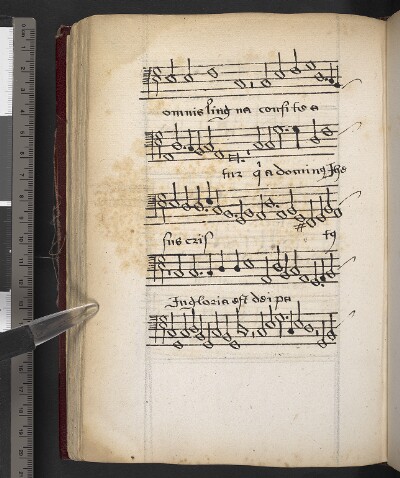 omnis ling na confitea
tur q a dominꝰ Ihe
sus cris tꝰ
In gloria est dei pa